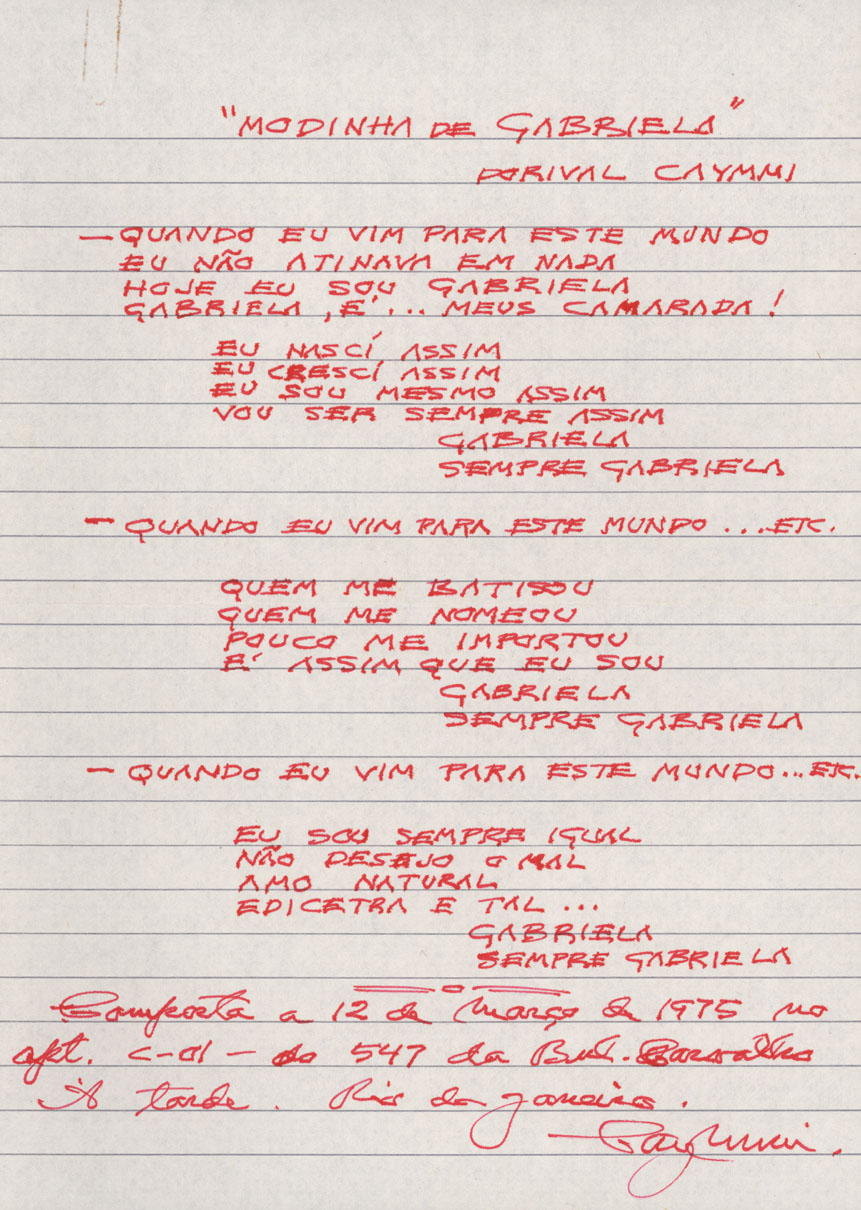 "MODINHA DE GABRIELA"
DORIVAL CAYMMI
— QUANDO EU VIM PARA ESTE MUNDO
EU NÃO ATINAVA EM NADA
HOJE EU SOU GABRIELA
GABRIELA, É'... MEUS CAMARADA!
EU NASCÍ ASSIM
EU CRESCÍ ASSIM
EU SOU MESMO ASSIM
VOU SER SEMPRE ASSIM
GABRIELA
SEMPRE GABRIELA
— QUANDO EU VIM PARA ESTE MUNDO ... ETC.
QUEM ME BATISOU
QUEM ME NOMEOU
POUCO ME IMPORTOU
É ASSIM QUE EU SOU
GABRIELA
SEMPRE GABRIELA
— QUANDO EU VIM PARA ESTE MUNDO... ETC.
EU SOU SEMPRE IGUAL
NÃO DESEJO O MAL
AMO NATURAL
EDICETRA E TAL ...
GABRIELA
SEMPRE GABRIELA
Composta a 12 de Março de 1975 no
apt. C-01 — do 547 da Carvalho
À tarde. Rio de Janeiro.
Caymmi.